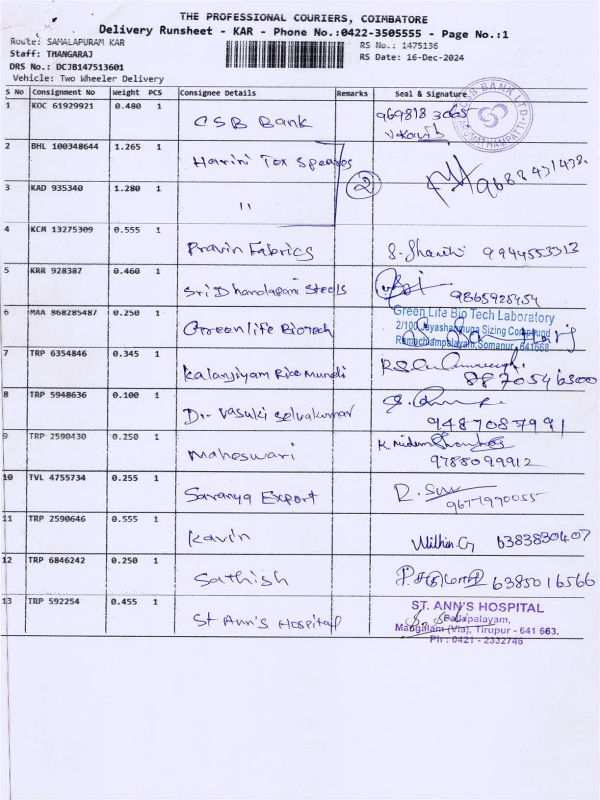 THE PROFESSIONAL COURIERS, COIMBATORE
Delivery Runsheet - KAR - Phone No.:0422-3505555 - Page No.:1
Route: SAMALAPURAM KAR
RS No.: 1475136
Staff: THANGARAJ
RS Date: 16-Dec-2024
DRS No.: DCJB147513601
Vehicle: Two Wheeler Delivery
S No Consignment No Weight PCS Consignee Details Remarks Seal & Signature
1 KOC 61929921 0.480 1 CSB Bank 969818 3065
CSB BANK LTD.
2 BHL 100348644 1.265 1 Harini Tex
2
3 KAD 935340 1.280 1 "
4 KCM 13275309 0.555 1 Pravin Fabrics S. Shanthi 9944553313
5 KRR 928387 0.460 1 Sri Dhandapani Steels 9865928454
6 MAA 868285487 0.250 1 Greenlife Biotech
Green Life Bio Tech Laboratory
2/100, Jayashanmuga Sizing Compound
Ramachampalayam, Somanur, 641668
7 TRP 6354846 0.345 1 Kalanjiyam Rice Mundi 8870546300
8 TRP 5948636 0.100 1 Dr. Vasuki Selvakumar 9487087991
9 TRP 2590430 0.250 1 Maheswari 9788099912
10 TVL 4755734 0.255 1 Saranya Export 9677970055
11 TRP 2590646 0.555 1 Kavin 6383830407
12 TRP 6846242 0.250 1 Sathish 6385016566
13 TRP 592254 0.455 1 St Ann's Hospital
ST. ANN'S HOSPITAL
Pallapalayam,
Mangalam (Via), Tirupur - 641 663.
Ph : 0421 - 2332746